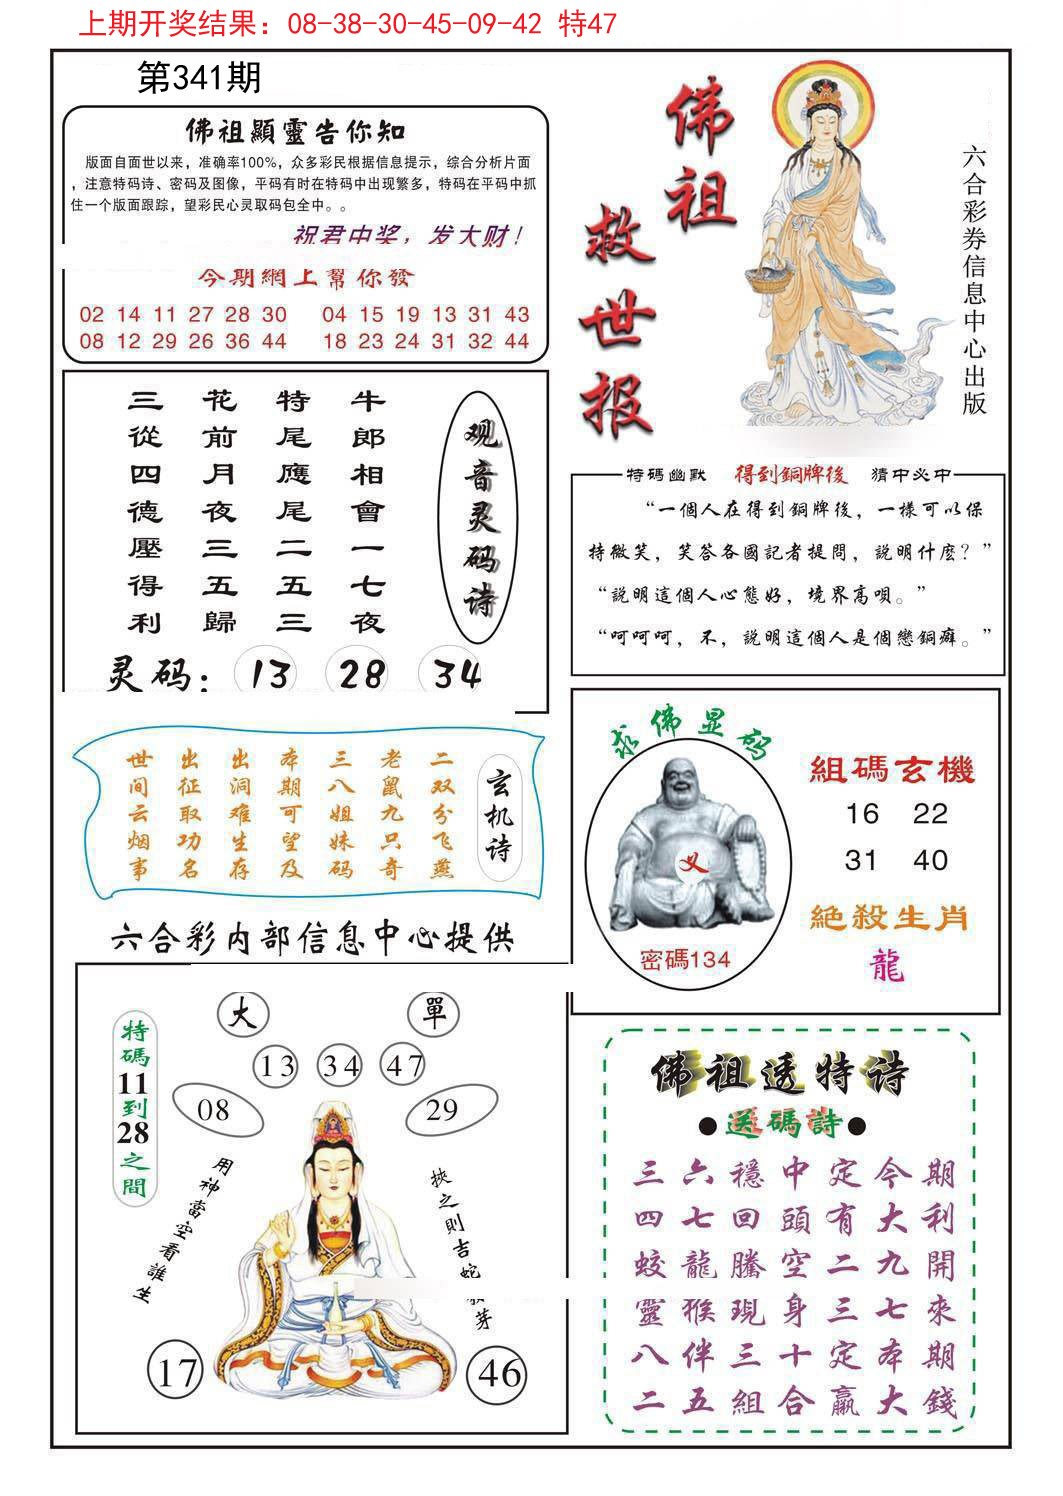 上期开奖结果：08-38-30-45-09-42 特47
第341期
佛祖顯靈告你知
版面自面世以来，准确率100%，众多彩民根据信息提示，综合分析片面
，注意特码诗、密码及图像，平码有时在特码中出现繁多，特码在平码中抓
住一个版面跟踪，望彩民心灵取码包全中。。
祝君中奖，发大财！
今期網上幫你發
02 14 11 27 28 30 04 15 19 13 31 43
08 12 29 26 36 44 18 23 24 31 32 44
佛祖
救世报
六合彩券信息中心出版
观音灵码诗
牛郎相會一七夜
特尾應尾二五三
花前月夜三五歸
三從四德壓得利
灵码：13 28 34
特碼幽默 得到銅牌後 猜中必中
“一個人在得到銅牌後，一樣可以保
持微笑，笑答各國記者提問，説明什麽？”
“説明這個人心態好，境界高唄。”
“呵呵呵，不，説明這個人是個戀銅癖。”
玄机诗
二双分飞燕
老鼠九只奇
三八姐妹码
本期可望及
出洞难生存
出征取功名
世间云烟事
求佛显码
义
密碼134
組碼玄機
16 22
31 40
絕殺生肖
龍
六合彩内部信息中心提供
特碼11到28之間
大 單
13 34 47
08 29
用神當空看誰生
挾之則吉蛇芽
17 46
佛祖透特诗
●送碼詩●
三六穩中定今期
四七回頭有大利
蛟龍騰空二九開
靈猴現身三七來
八伴三十定本期
二五組合贏大錢